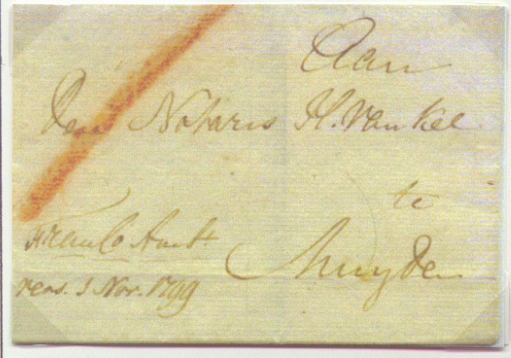 Aan
den Notaris H. van Kel
te
Muyden
franco Amst
rens. 1 Nov. 1799